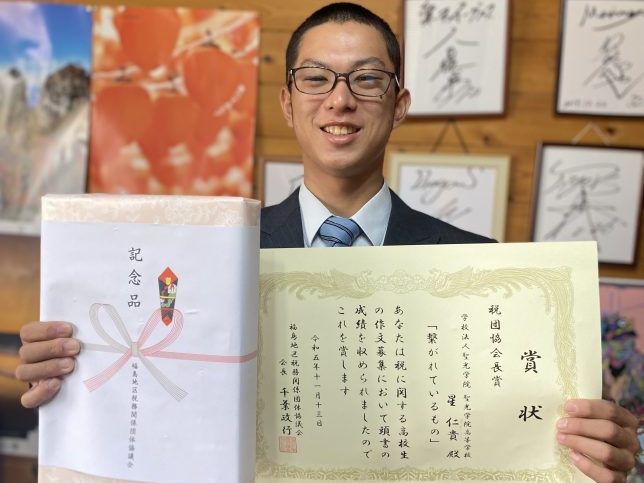 記念品
福島地区税務関係団体協議会
賞状
税団協会長賞
学校法人聖光学院 聖光学院高等学校
星 仁貴 殿
「繋がれているもの」
あなたは税に関する高校生
の作文募集において頭書の
成績を収められましたので
これを賞します
令和五年十一月十三日
福島地区税務関係団体協議会
会長 千葉政行